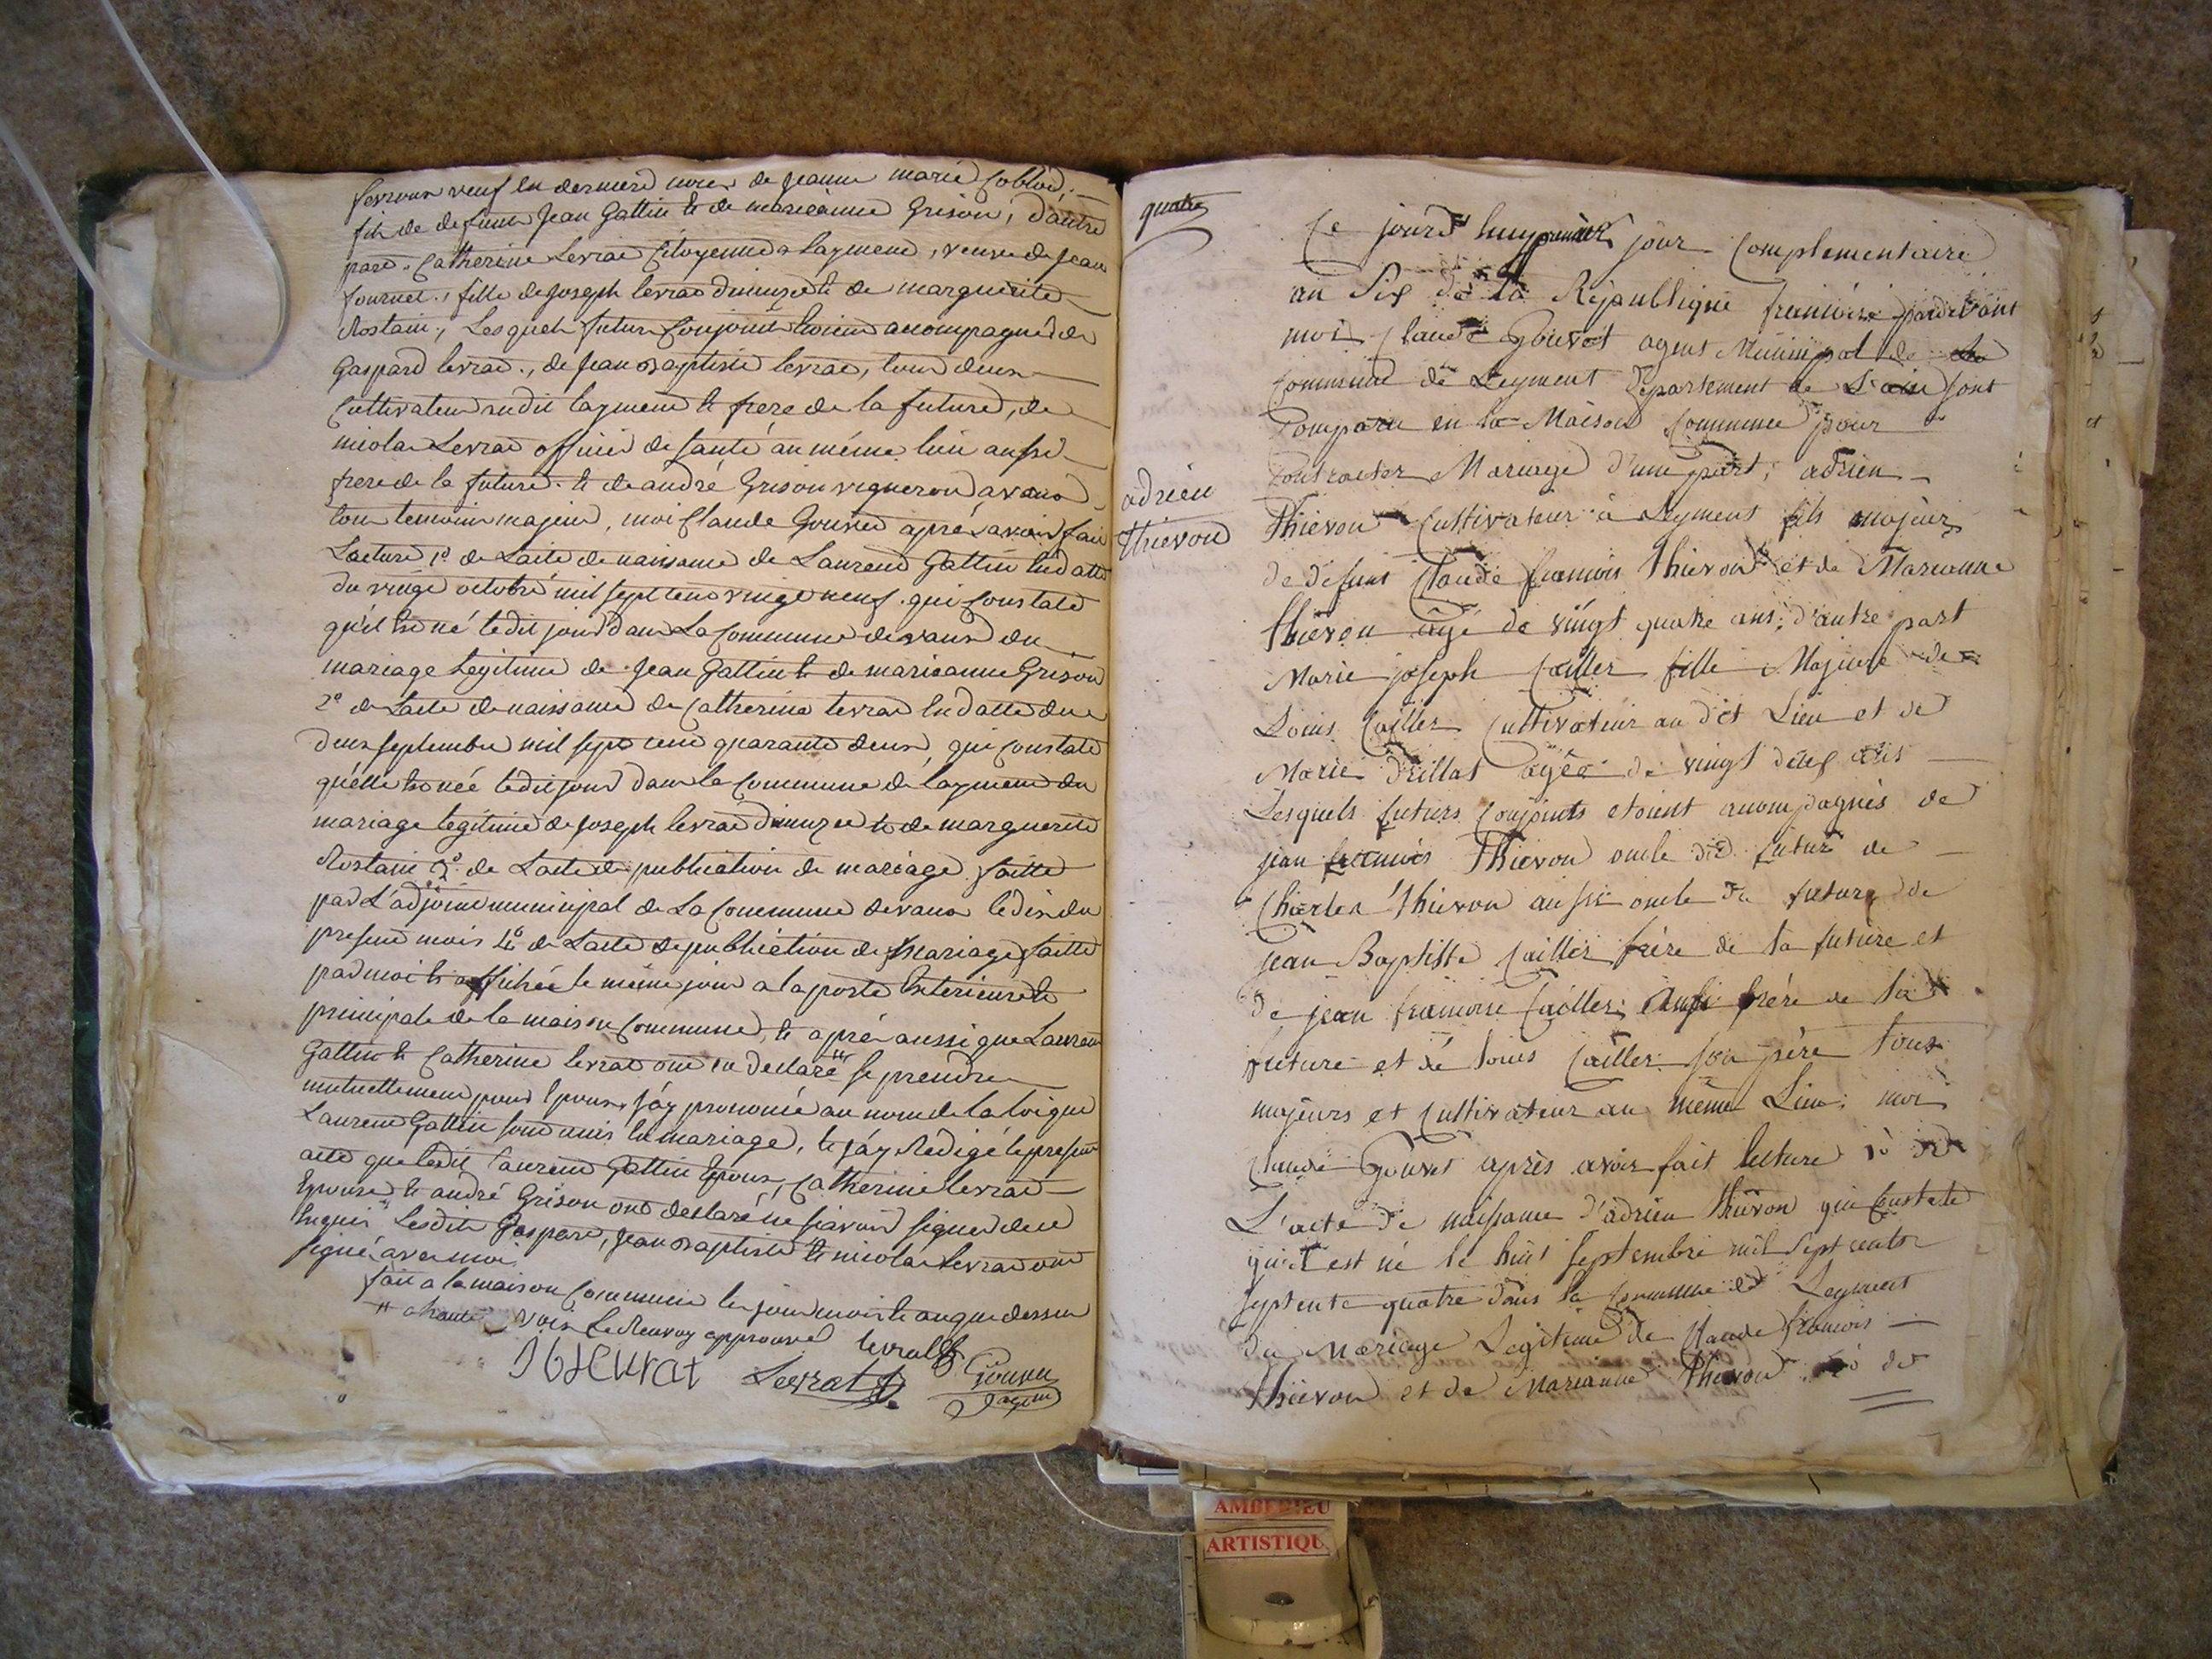 veuf en de jeanne marie
fils de defunt Jean Gattin et de marieanne Grison, d'autre
part. Catherine Levrat Citoyenne a Laymend, veuve de Jean
fournet, fille de joseph levrat et de marguerite
Rostain, Lesquels futurs Conjoints étoient accompagnéd de
Gaspard levrat, de Jean Baptiste levrat, tous deux
Cultivateur audit laymend et frere de la future, de
nicolas Levrat officier de santé au même lieu aussi
frere de la future et de andré Grison vigneron a vaux
tous temoins majeur, moi Claude Gouvet après avoir fait
Lecture 1º de Lacte de naissance de Laurend Gattin en datte
du vingt octobre mil sept cens vingt neuf qui Constate
qu'il est né ledit jour dans La Commune devaux du
mariage Legitime de Jean Gattin et de marieanne Grison
2º de Lacte de naissance de Catherine levrat en datte du
deux septembre mil sept cens quarante deux, qui Constate
qu'elle est née ledit jour dans la Commune de laymend du
mariage legitime de Joseph levrat et de marguerite
Rostain 3º de Lacte de publication de mariage faitte
par L'adjoint municipal de La Commune devaux ledix du
present mois 4º de Lacte de publication de mariage faitte
par moi et affichée le même jour a la porte Exterieure et
principale de la maison Commune, et aprés aussi que Laurend
Gattin et Catherine levrat ont eu declaré " se prendre
mutuellement pour Epoux, j'ay prononcé au nom de la loi que
Laurend Gattin sont unis en mariage, et j'ay Redigé le present
acte que ledit Laurend Gattin Epoux, Catherine levrat
Epouse et andré Grison ont declaré ne sçavoir signer de ce
Enquis " Lesdits Gaspard, Jean Baptiste et nicolas Levrat ont
signé avec moi
fait a la maison Commune les jour mois et an que dessus
" a haute voix Le Renvoy approuvé levrat
Levrat Gouvet
agent
quatre
Ce jourd'huy premier jour Complementaire
an Six de la Republique francoise pardevant
moi Claude Gouvet agent Municipal de la
Commune de Leyment Departement de L'ain sont
Comparu en la Maison Commune pour
Contracter Mariage d'une part; adrien
adrien
Thievon
Thievon Cultivateur à Leyment fils majeur
de defunt Claude francois Thievon et de Marianne
Thievon agé de vingt quatre ans; d'autre part
Marie joseph Cailler fille Majeure de
Louis Cailler Cultivateur au dit Lieu et de
Marie Drillat agée de vingt ans
Lesquels futurs Conjoints etoient accompagnés de
jean francois Thievon oncle du futur de
Charles Thievon aussi oncle du futur de
jean Baptiste Cailler frère de la future et
de jean francois Cailler; aussi frère de la
future et de Louis Cailler son père tous
majeurs et Cultivateur au même Lieu; moi
Claude Gouvet après avoir fait lecture 1º de
L'acte de naissance d'adrien Thievon qui Constate
qu'il est né le huit septembre mil sept cents
septente quatre dans la Commune de Leyment
du Mariage Legitime de Claude francois
Thievon et de Marianne Thievon 2º de
AMBERIEU
ARTISTIQU